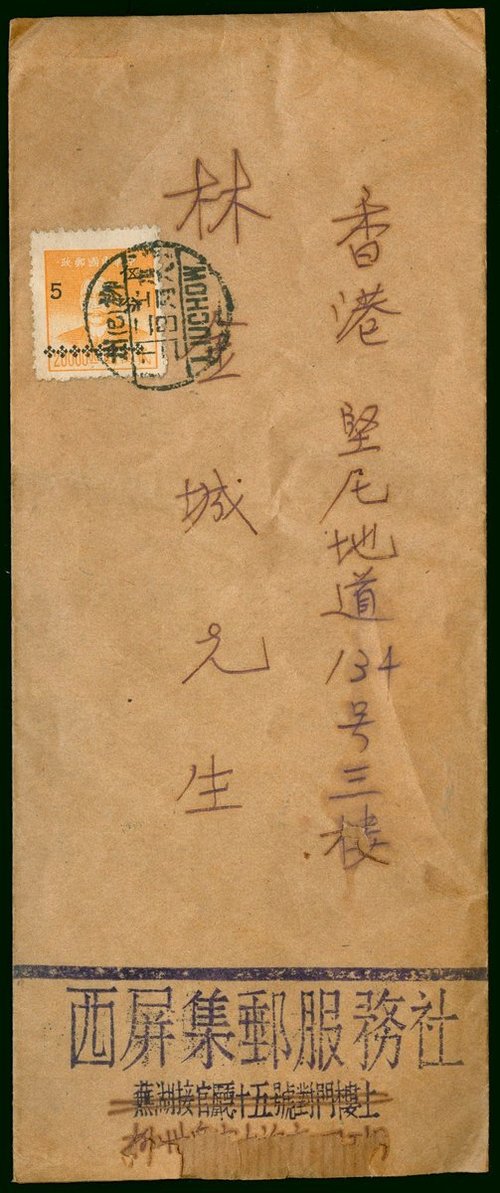 香港 堅尼地道134号三楼
林 城先生
5
20000
LIUCHOW
西屏集郵服務社
蕪湖接官廳十五號對門樓上